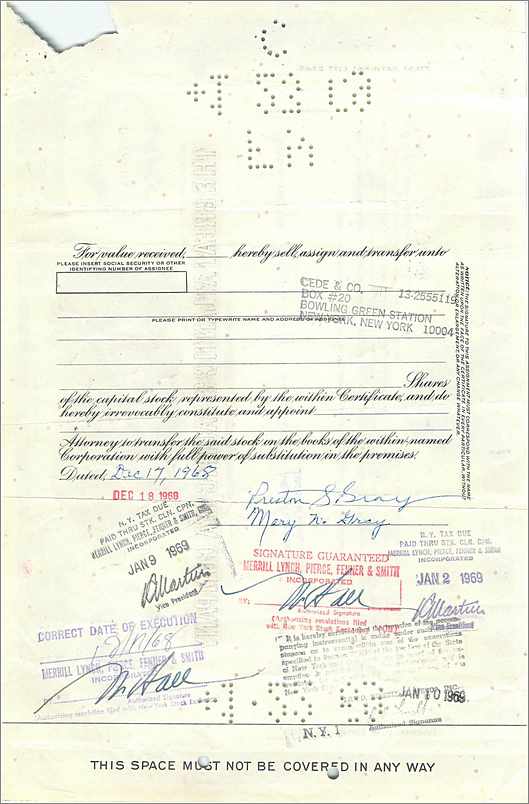 For value received, hereby sell, assign and transfer unto
PLEASE INSERT SOCIAL SECURITY OR OTHER
IDENTIFYING NUMBER OF ASSIGNEE
CEDE & CO. 13-2555119
BOX #20
BOWLING GREEN STATION
NEW YORK, NEW YORK 10004
PLEASE PRINT OR TYPEWRITE NAME AND ADDRESS OF ASSIGNEE
NOTICE: THE SIGNATURE TO THIS ASSIGNMENT MUST CORRESPOND WITH THE NAME
AS WRITTEN UPON THE FACE OF THE CERTIFICATE IN EVERY PARTICULAR WITHOUT
ALTERATION OR ENLARGEMENT OR ANY CHANGE WHATEVER.
Shares
of the capital stock represented by the within Certificate, and do
hereby irrevocably constitute and appoint
Attorney to transfer the said stock on the books of the within-named
Corporation with full power of substitution in the premises.
Dated, Dec 17, 1968
DEC 18 1968
Preston S. Gray
Mary W. Gray
N.Y. TAX DUE
PAID THRU STK. CLN. CPN.
MERRILL LYNCH, PIERCE, FENNER & SMITH, INC.
INCORPORATED
JAN 9 1969
Vice President
SIGNATURE GUARANTEED
MERRILL LYNCH, PIERCE, FENNER & SMITH
INCORPORATED
BY:
Authorized Signature
(Authorizing resolutions filed
with New York Stock Exchange)
N.Y. TAX DUE
PAID THRU STK. CLN. CPN.
MERRILL LYNCH, PIERCE, FENNER & SMITH
INCORPORATED
JAN 2 1969
Vice President
CORRECT DATE OF EXECUTION
12/17/68
MERRILL LYNCH, PIERCE, FENNER & SMITH
INCORPORATED
Authorized Signature
(Authorizing resolution filed with New York Stock Exchange)
It is hereby certified
JAN 10 1969
Authorized Signature
N.Y. 1
THIS SPACE MUST NOT BE COVERED IN ANY WAY